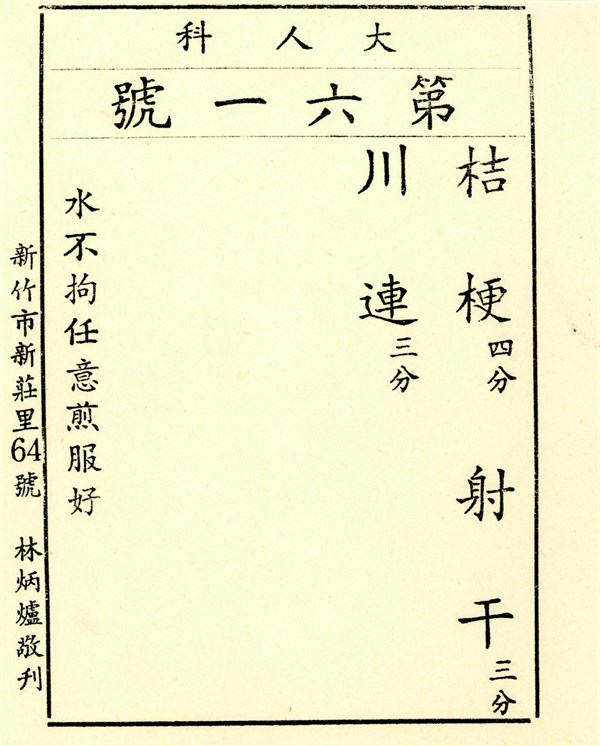 大人科
第六一號
桔梗四分 射干三分
川連三分
水不拘任意煎服好
新竹市新莊里64號 林炳爐敬刋